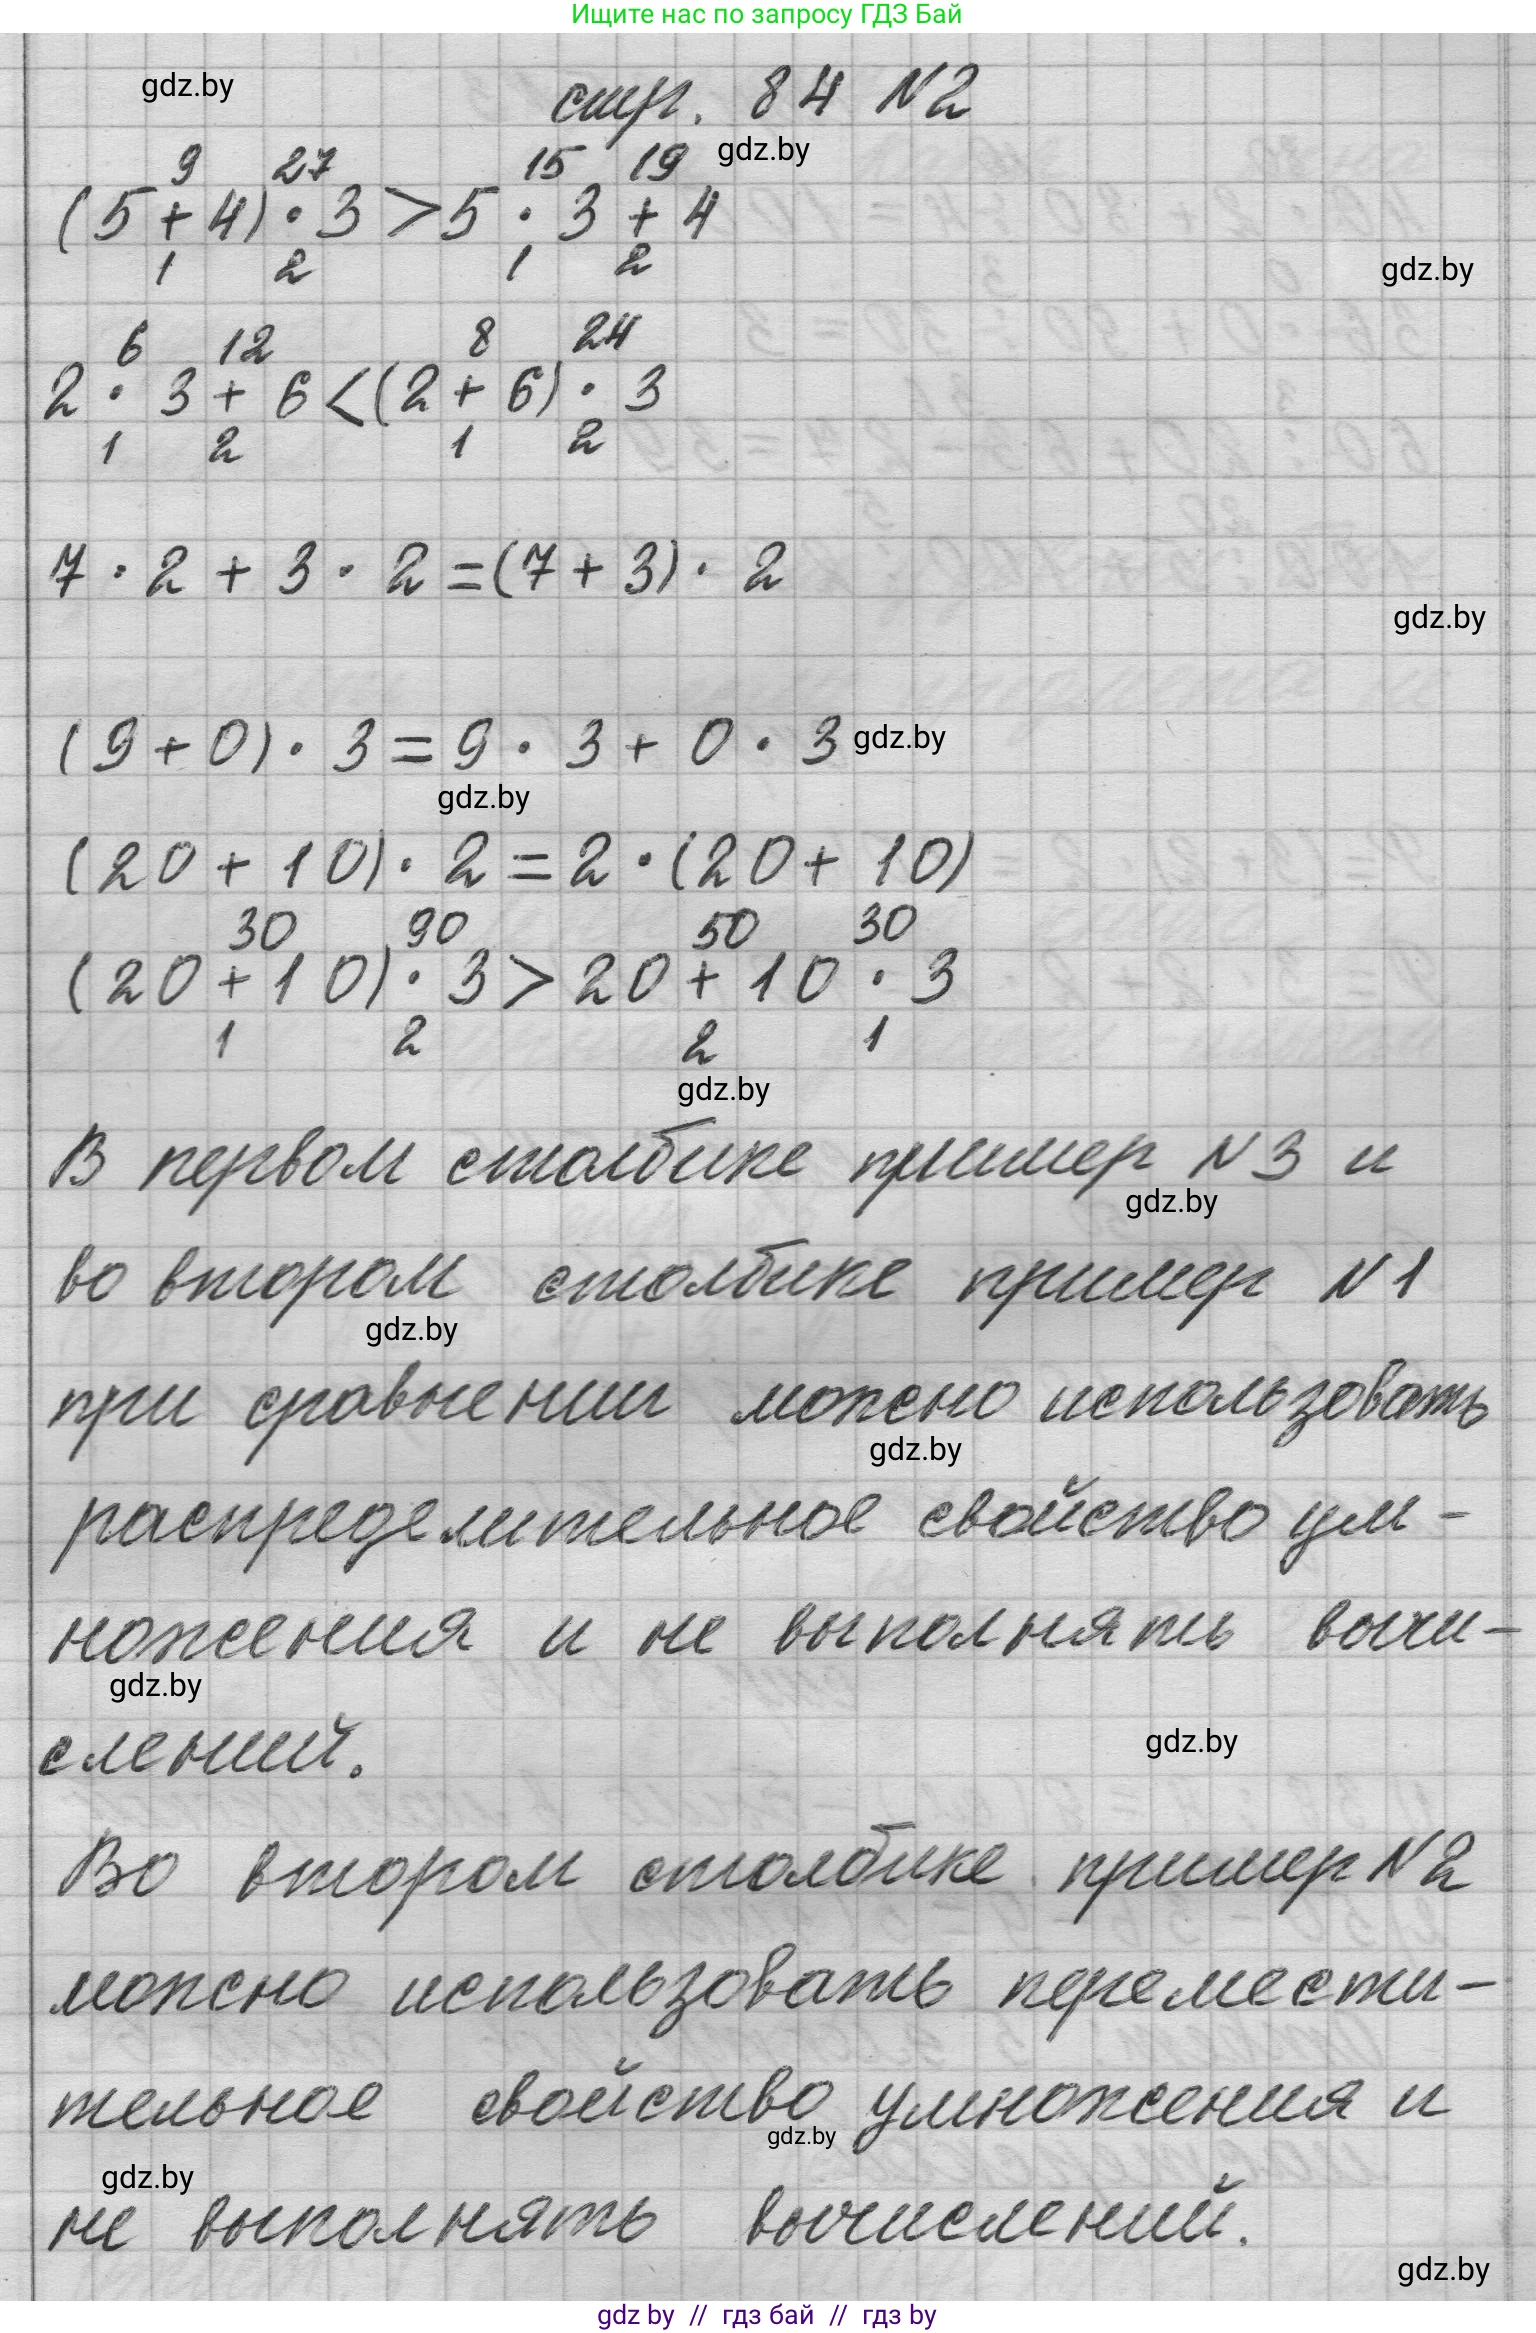 Ищите нас по запросу ГДЗ Бай
gdz.by
стр. 84 №2
gdz.by
9 27 15 19
(5+4)·3>5·3+4
1 2 1 2
gdz.by
6 12 8 24
2·3+6<(2+6)·3
1 2 1 2
7·2+3·2=(7+3)·2
gdz.by
(9+0)·3=9·3+0·3
gdz.by
gdz.by
(20+10)·2=2·(20+10)
30 90 50 30
(20+10)·3>20+10·3
1 2 2 1
gdz.by
В первом столбике пример №3 и
gdz.by
во втором столбике пример №1
gdz.by
при сравнении можно использовать
gdz.by
распределительное свойство ум-
ножения и не выполнять вычи-
gdz.by
слений.
gdz.by
Во втором столбике пример №2
можно использовать перемести-
тельное свойство умножения и
gdz.by
gdz.by
не выполнять вычислений.
gdz.by
gdz by // гдз бай // гдз by